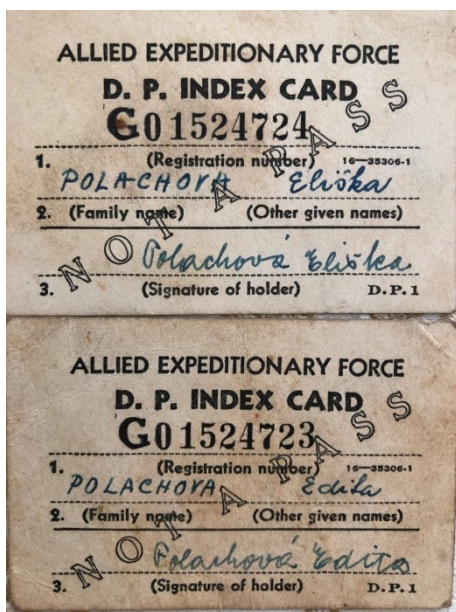 ALLIED EXPEDITIONARY FORCE
D. P. INDEX CARD
G01524724
1. (Registration number) 16—35306-1
POLACHOVA Eliška
2. (Family name) (Other given names)
Polachová Eliška
3. (Signature of holder) D.P.1
NOT A PASS
ALLIED EXPEDITIONARY FORCE
D. P. INDEX CARD
G01524723
1. (Registration number) 16—35306-1
POLACHOVA Edita
2. (Family name) (Other given names)
Polachová Edita
3. (Signature of holder) D.P.1
NOT A PASS